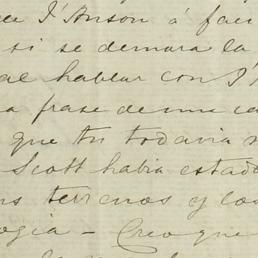 de I'Anson á fau
si se demora la
al hablar con I'
a frase de me ca
que tu todavia n
Scott habia estado
terrenos y los
ogia - Creo que